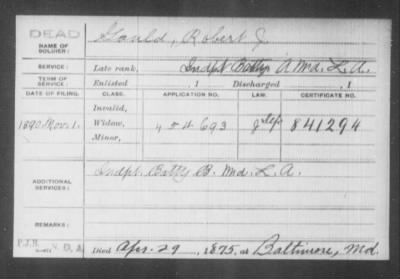 DEAD
NAME OF SOLDIER:
Gould, Robert J.
SERVICE:
Late rank, Indpt. Batty A Md. L. A.
TERM OF SERVICE:
Enlisted , 1 Discharged , 1
DATE OF FILING. CLASS. APPLICATION NO. LAW. CERTIFICATE NO.
Invalid,
1890 Nov. 1. Widow, 454693 841294
Minor,
ADDITIONAL SERVICES:
Indpt. Batty B. Md. L. A.
REMARKS:
Died Apr. 29, 1875, at Baltimore, Md.